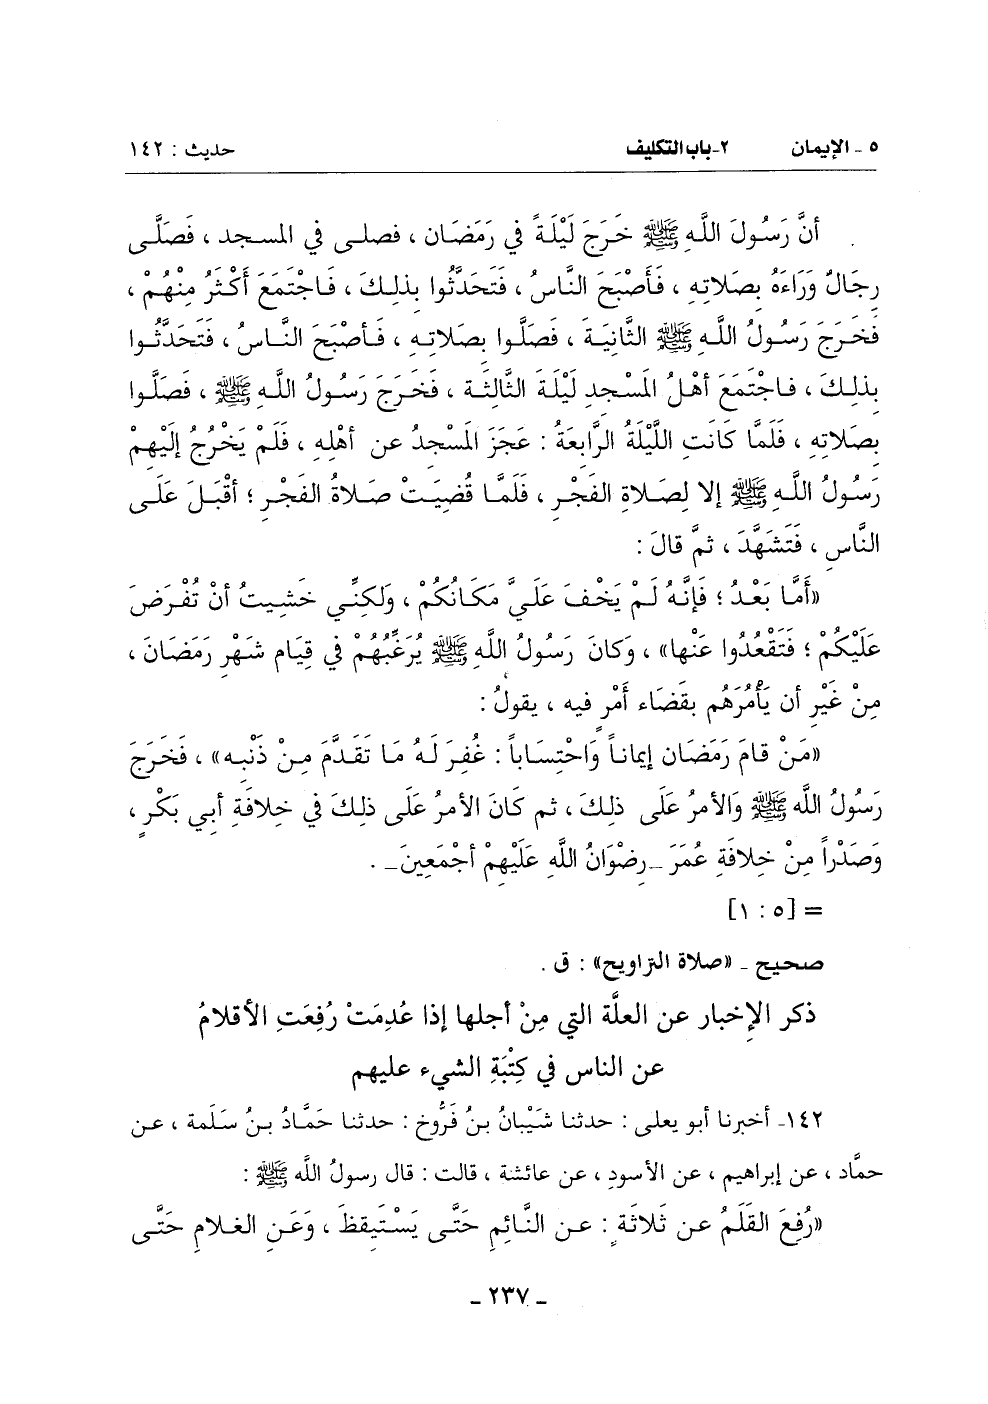 ٥ - الإيمان ٢-باب التكليف حديث : ١٤٢
أنَّ رَسُولَ اللَّهِ ﷺ خَرَجَ لَيْلَةً في رَمَضَان ، فصلى في المسجد ، فَصَلَّى
رِجَالٌ وَرَاءَهُ بِصَلاتِهِ ، فَأَصْبَحَ النَّاسُ ، فَتَحَدَّثُوا بِذلِكَ ، فَاجْتَمَعَ أَكْثَرُ مِنْهُمْ ،
فَخَرَجَ رَسُولُ اللَّهِ ﷺ الثَّانِيَةَ ، فَصَلَّوا بِصَلاتِهِ ، فَأصْبَحَ النَّاسُ ، فَتَحَدَّثُوا
بِذلِكَ ، فاجْتَمَعَ أهْلُ المَسْجِدِ لَيْلَةَ الثَّالِثَة ، فَخَرَجَ رَسُولُ اللَّهِ ﷺ ، فَصَلَّوا
بِصَلاتِهِ ، فَلَمَّا كَانَتِ اللَّيْلَةُ الرَّابِعَةُ : عَجَزَ المَسْجِدُ عن أهْلِهِ ، فَلَمْ يَخْرُجْ إلَيْهِمْ
رَسُولُ اللَّهِ ﷺ إلا لِصَلاةِ الفَجْرِ ، فَلَمَّا قُضِيَتْ صَلاةُ الفَجْرِ ؛ أقْبَلَ عَلَى
النَّاسِ ، فَتَشَهَّدَ ، ثمَّ قالَ :
«أَمَّا بَعْدُ ؛ فَإنَّهُ لَمْ يَخْفَ عَلَيَّ مَكَانُكُمْ ، وَلكِنِّي خَشِيتُ أنْ تُفْرَضَ
عَلَيْكُمْ ؛ فَتَقْعُدُوا عَنْها» ، وَكانَ رَسُولُ اللَّهِ ﷺ يُرَغِّبُهُمْ في قِيَامِ شَهْرِ رَمَضَانَ ،
مِنْ غَيْرِ أن يَأْمُرَهُم بِقَضَاء أَمْرٍ فيه ، يقولُ :
«مَنْ قامَ رَمَضَان إيماناً وَاحْتِسَاباً : غُفِرَ لَهُ مَا تَقَدَّمَ مِنْ ذَنْبِه» ، فَخَرَجَ
رَسُولُ اللَّه ﷺ وَالأمرُ عَلَى ذلِكَ ، ثم كَانَ الأمرُ عَلَى ذلِكَ في خِلافَةِ أبي بَكْرٍ ،
وَصَدْراً مِنْ خِلافَةِ عُمَرَ -رِضْوَانُ اللَّهِ عَلَيْهِمْ أجْمَعِينَ- .
= [٥ : ١]
صحيح - «صلاة التراويح» : ق .
ذكر الإخبار عن العلَّة التي مِنْ أجلها إذا عُدِمَتْ رُفِعَتِ الأقلامُ
عن الناس في كِتْبَةِ الشيء عليهم
١٤٢- أخبرنا أبو يعلى : حدثنا شَيْبَانُ بنُ فَرُّوخ : حدثنا حَمَّادُ بنُ سَلَمة ، عن
حمَّاد ، عن إبراهيم ، عن الأسودِ ، عن عائشة ، قالت : قال رسولُ اللَّه ﷺ :
«رُفِعَ القَلَمُ عن ثَلاثَةٍ : عن النَّائِمِ حَتَّى يَسْتَيقِظَ ، وَعَنِ الغلامِ حَتَّى
- ٢٣٧ -